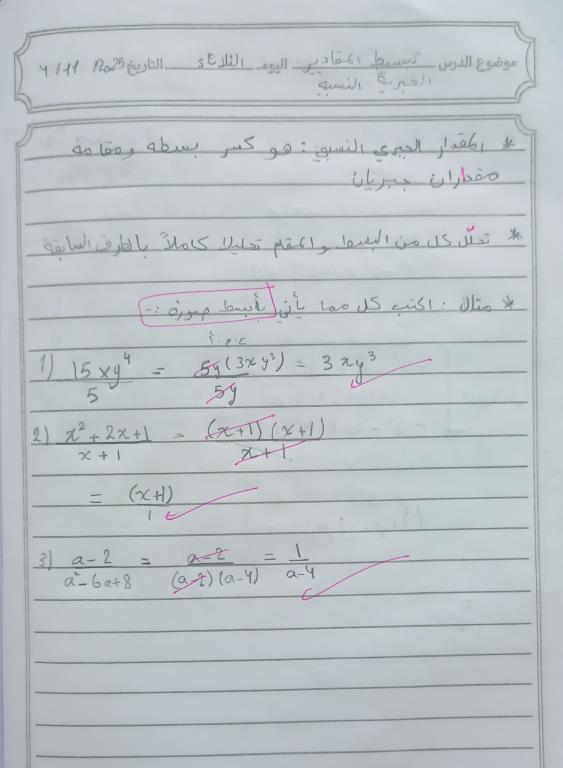 موضوع الدرس تبسيط المقادير اليوم الثلاثاء التاريخ 2025 4/11
الجبرية النسبية
* المقدار الجبري النسبي : هو كسر بسطه ومقامه
مقداران جبريان
* تحلّل كل من البسط والمقام تحليلا كاملاً بالطرق السابقة
* مثال : اكتب كل مما يأتي بأبسط صورة :-
ع.م.أ
1) 15xy⁴/5 = 5y(3xy³)/5y = 3xy³
2) x²+2x+1/x+1 = (x+1)(x+1)/x+1
= (x+1)/1
3) a-2/a²-6a+8 = a-2/(a-2)(a-4) = 1/a-4